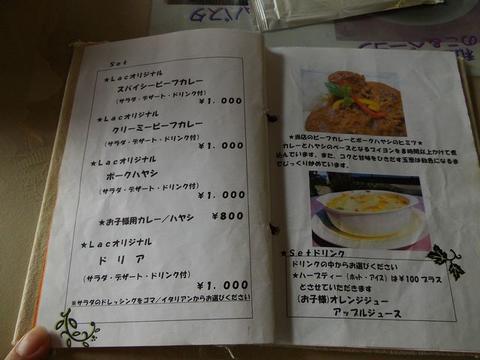 Set
★Lacオリジナル
スパイシービーフカレー
(サラダ・デザート・ドリンク付)
¥1.000
★Lacオリジナル
クリーミービーフカレー
(サラダ・デザート・ドリンク付)
¥1.000
★Lacオリジナル
ポークハヤシ
(サラダ・デザート・ドリンク付)
¥1.000
★お子様用カレー/ハヤシ ¥800
★Lacオリジナル
ドリア
(サラダ・デザート・ドリンク付)
¥1.000
※サラダのドレッシングをゴマ/イタリアンからお選びください
★当店のビーフカレーとポークハヤシのヒミツ★
カレーとハヤシのベースとなるブイヨンを8時間以上かけて煮
込んでいます。また、コクと甘味をひきだす玉葱は飴色になるま
でじっくり炒めています。
★Setドリンク
ドリンクの中からお選びください
★ハーブティー(ホット・アイス)は¥100プラス
とさせていただきます
(お子様)オレンジジュー
アップルジュース
パスタ